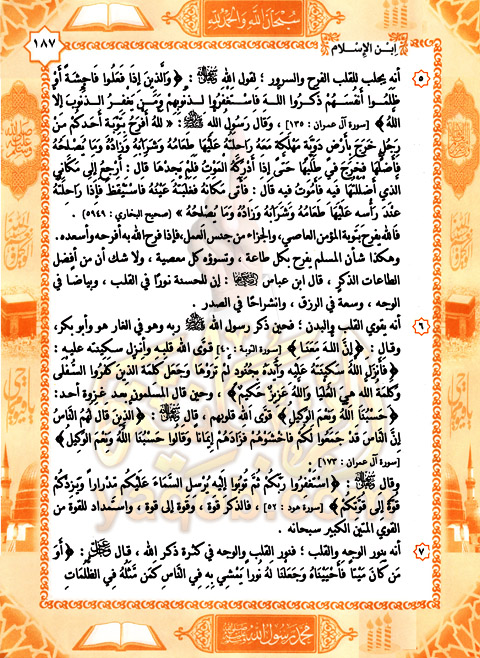 سبحان الله والحمد لله
١٨٧
ابن الإسلام
٥ أنه يجلب للقلب الفرح والسرور ؛ لقول الله : ﴿ وَالَّذِينَ إِذَا فَعَلُوا فَاحِشَةً أَوْ
ظَلَمُوا أَنفُسَهُمْ ذَكَرُوا اللَّهَ فَاسْتَغْفَرُوا لِذُنُوبِهِمْ وَمَن يَغْفِرُ الذُّنُوبَ إِلَّا
اللَّهُ ﴾ [سورة آل عمران : ١٣٥] ، وقال رسول الله ﷺ : « للهُ أفرَحُ بِتَوبَةِ أَحَدِكُمْ مِنْ
رَجُلٍ خَرَجَ بِأَرْضٍ دَوِيَّةٍ مَهْلَكَةٍ مَعَهُ رَاحِلَتُهُ عَلَيْهَا طَعَامُهُ وَشَرَابُهُ وَزَادُهُ وَمَا يُصْلِحُهُ
فَأَضَلَّهَا فَخَرَجَ فِي طَلَبِهَا حَتَّى إِذَا أَدْرَكَهُ الْمَوْتُ فَلَمْ يَجِدْهَا قَالَ : أَرْجِعُ إِلَى مَكَانِي
الذي أَضْلَلْتُهَا فِيهِ فَأَمُوتُ فِيهِ قَالَ : فَأَتَى مَكَانَهُ فَغَلَبَتْهُ عَيْنُهُ فَاسْتَيْقَظَ فَإِذَا رَاحِلَتُهُ
عِنْدَ رَأسه عَلَيْهَا طَعَامُهُ وَشَرَابُهُ وَزَادُهُ وَمَا يُصْلِحُهُ » (صحيح البخاري : ٥٩٤٩) .
فالله يفرح بتوبة المؤمن العاصي، والجزاء من جنس العمل، فإذا فرح الله به أفرحه وأسعده.
وهكذا شأن المسلم يفرح بكل طاعة ، وتسوؤه كل معصية ، ولا شك أن من أفضل
الطاعات الذكر ، قال ابن عباس : إن للحسنة نوراً في القلب ، وبياضا في
الوجه ، وسعة في الرزق ، وانشراحًا في الصدر .
٦ أنه يقوي القلب والبدن ؛ فحين ذكر رسول الله ﷺ ربه وهو في الغار هو وأبو بكر،
وقال : ﴿ إِنَّ اللَّهَ مَعَنَا ﴾ [سورة التوبة : ٤٠] قوَّى الله قلبه وأنزل سكينته عليه :
﴿ فَأَنزَلَ اللَّهُ سَكِينَتَهُ عَلَيْهِ وَأَيَّدَهُ بِجُنُودٍ لَّمْ تَرَوْهَا وَجَعَلَ كَلِمَةَ الَّذِينَ كَفَرُوا السُّفْلَى
وَكَلِمَةُ اللهِ هِيَ الْعُلْيَا وَاللَّهُ عَزِيزٌ حَكِيمٌ ﴾ ، وحين قال المسلمون بعد غزوة أحد :
﴿ حَسْبُنَا اللَّهُ وَنِعْمَ الْوَكِيلُ ﴾ قوَّى الله قلوبهم ، قال : ﴿ الَّذِينَ قَالَ لَهُمُ النَّاسُ
إِنَّ النَّاسَ قَدْ جَمَعُوا لَكُمْ فَاخْشَوْهُمْ فَزَادَهُمْ إِيمَانًا وَقَالُوا حَسْبُنَا اللَّهُ وَنِعْمَ الْوَكِيلُ ﴾
[سورة آل عمران : ١٧٣]
وقال : ﴿ اسْتَغْفِرُوا رَبَّكُمْ ثُمَّ تُوبُوا إِلَيْهِ يُرْسِلِ السَّمَاءَ عَلَيْكُم مِّدْرَارًا وَيَزِدْكُمْ
قُوَّةً إِلَى قُوَّتِكُمْ ﴾ [سورة هود : ٥٢] ، فالذكر قوة ، وقوة إلى قوة ، واستمداد للقوة من
القوي المتين الكبير سبحانه .
٧ أنه ينور الوجه والقلب ؛ فنور القلب والوجه في كثرة ذكر الله ، قال : ﴿ أَوَ
مَن كَانَ مَيْتًا فَأَحْيَيْنَاهُ وَجَعَلْنَا لَهُ نُورًا يَمْشِي بِهِ فِي النَّاسِ كَمَن مَّثَلُهُ فِي الظُّلُمَاتِ
محمد رسول الله